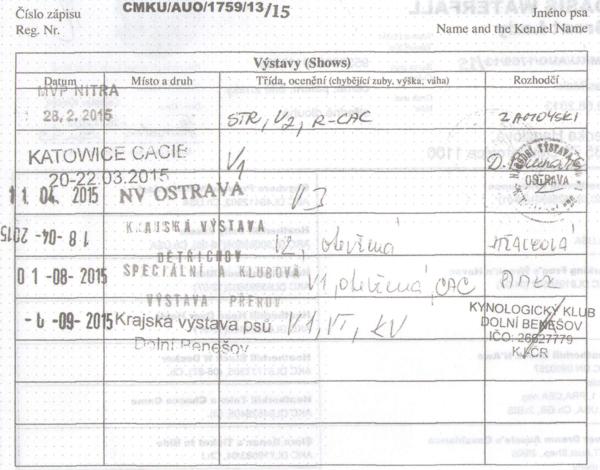 Číslo zápisu CMKU/AUO/1759/13/15 Jméno psa
Reg. Nr. Name and the Kennel Name
Výstavy (Shows)
Datum Místo a druh Třída, ocenění (chybějící zuby, výška, váha) Rozhodčí
MVP NITRA
28.2.2015 STR, V2, R-CAC
KATOWICE CACIB V1
20-22.03.2015
NÁRODNÍ VÝSTAVA
OSTRAVA
11. 04. 2015 NV OSTRAVA V3
KRAJSKÁ VÝSTAVA
18 -04- 2015 V2, otevřená
DĚTŘICHOV
SPECIÁLNÍ A KLUBOVÁ
01 -08- 2015 V1, otevřená, CAC
VÝSTAVA PŘEROV
-6 -09- 2015 Krajská výstava psů V1, VT, KV
Dolní Benešov
KYNOLOGICKÝ KLUB
DOLNÍ BENEŠOV
IČO: 26627779
KJ-ČR